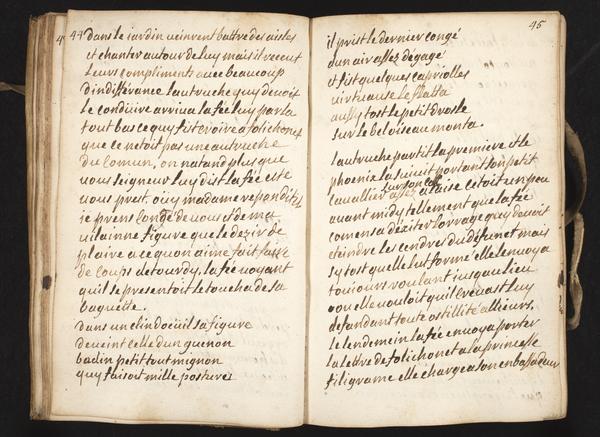 44
dans le iardin veinrent battre des aisles
et chanter autour de luy mais il receut
leurs compliments avec beaucoup
d'indifférance lautruche quy devoit
le conduire arriva la fée luy parla
tout bas ce quy fist croire a folichonet
que ce netoit pas une autruche
du comun, on natand plus que
vous seigneur luy dist la fée este
vous prest, ouy madame repondit il
ie prens congé de vous et de ma
vilainne figure que le dezir de
plaire a ce quon aime fait faire
de coups detourdy, la fée voyant
quil se presentoit le toucha de sa
baguette.
dans un clin doeüil sa figure
deveint celle dun guenon
badin petit tout mignon
quy faisoit mille postures
45
il prist le dernier congé
dun air assez dégagé
et fist quelques capriolles
virtuause le flatta
aussy tost le petit drosle
sur le bel oiseau monta.
lautruche partit la premiere et le
phoenix la suivit portant son petit
cavallier sur son col assez a laise cetoit un peu
avant midy tellement que la fée
comensa dexiter lorage quy devoit
eteindre les cendres du défunct mais
sy tost quelle lut formé elle lenvoya
toujours roulant iusquau lieu
ou elle vouloit quil crevast luy
defandant toute ostillité allieurs.
le lendemein la fée envoya porter
la lettre de folichonet a la princesse
filigrame elle chargea son enbassadeur